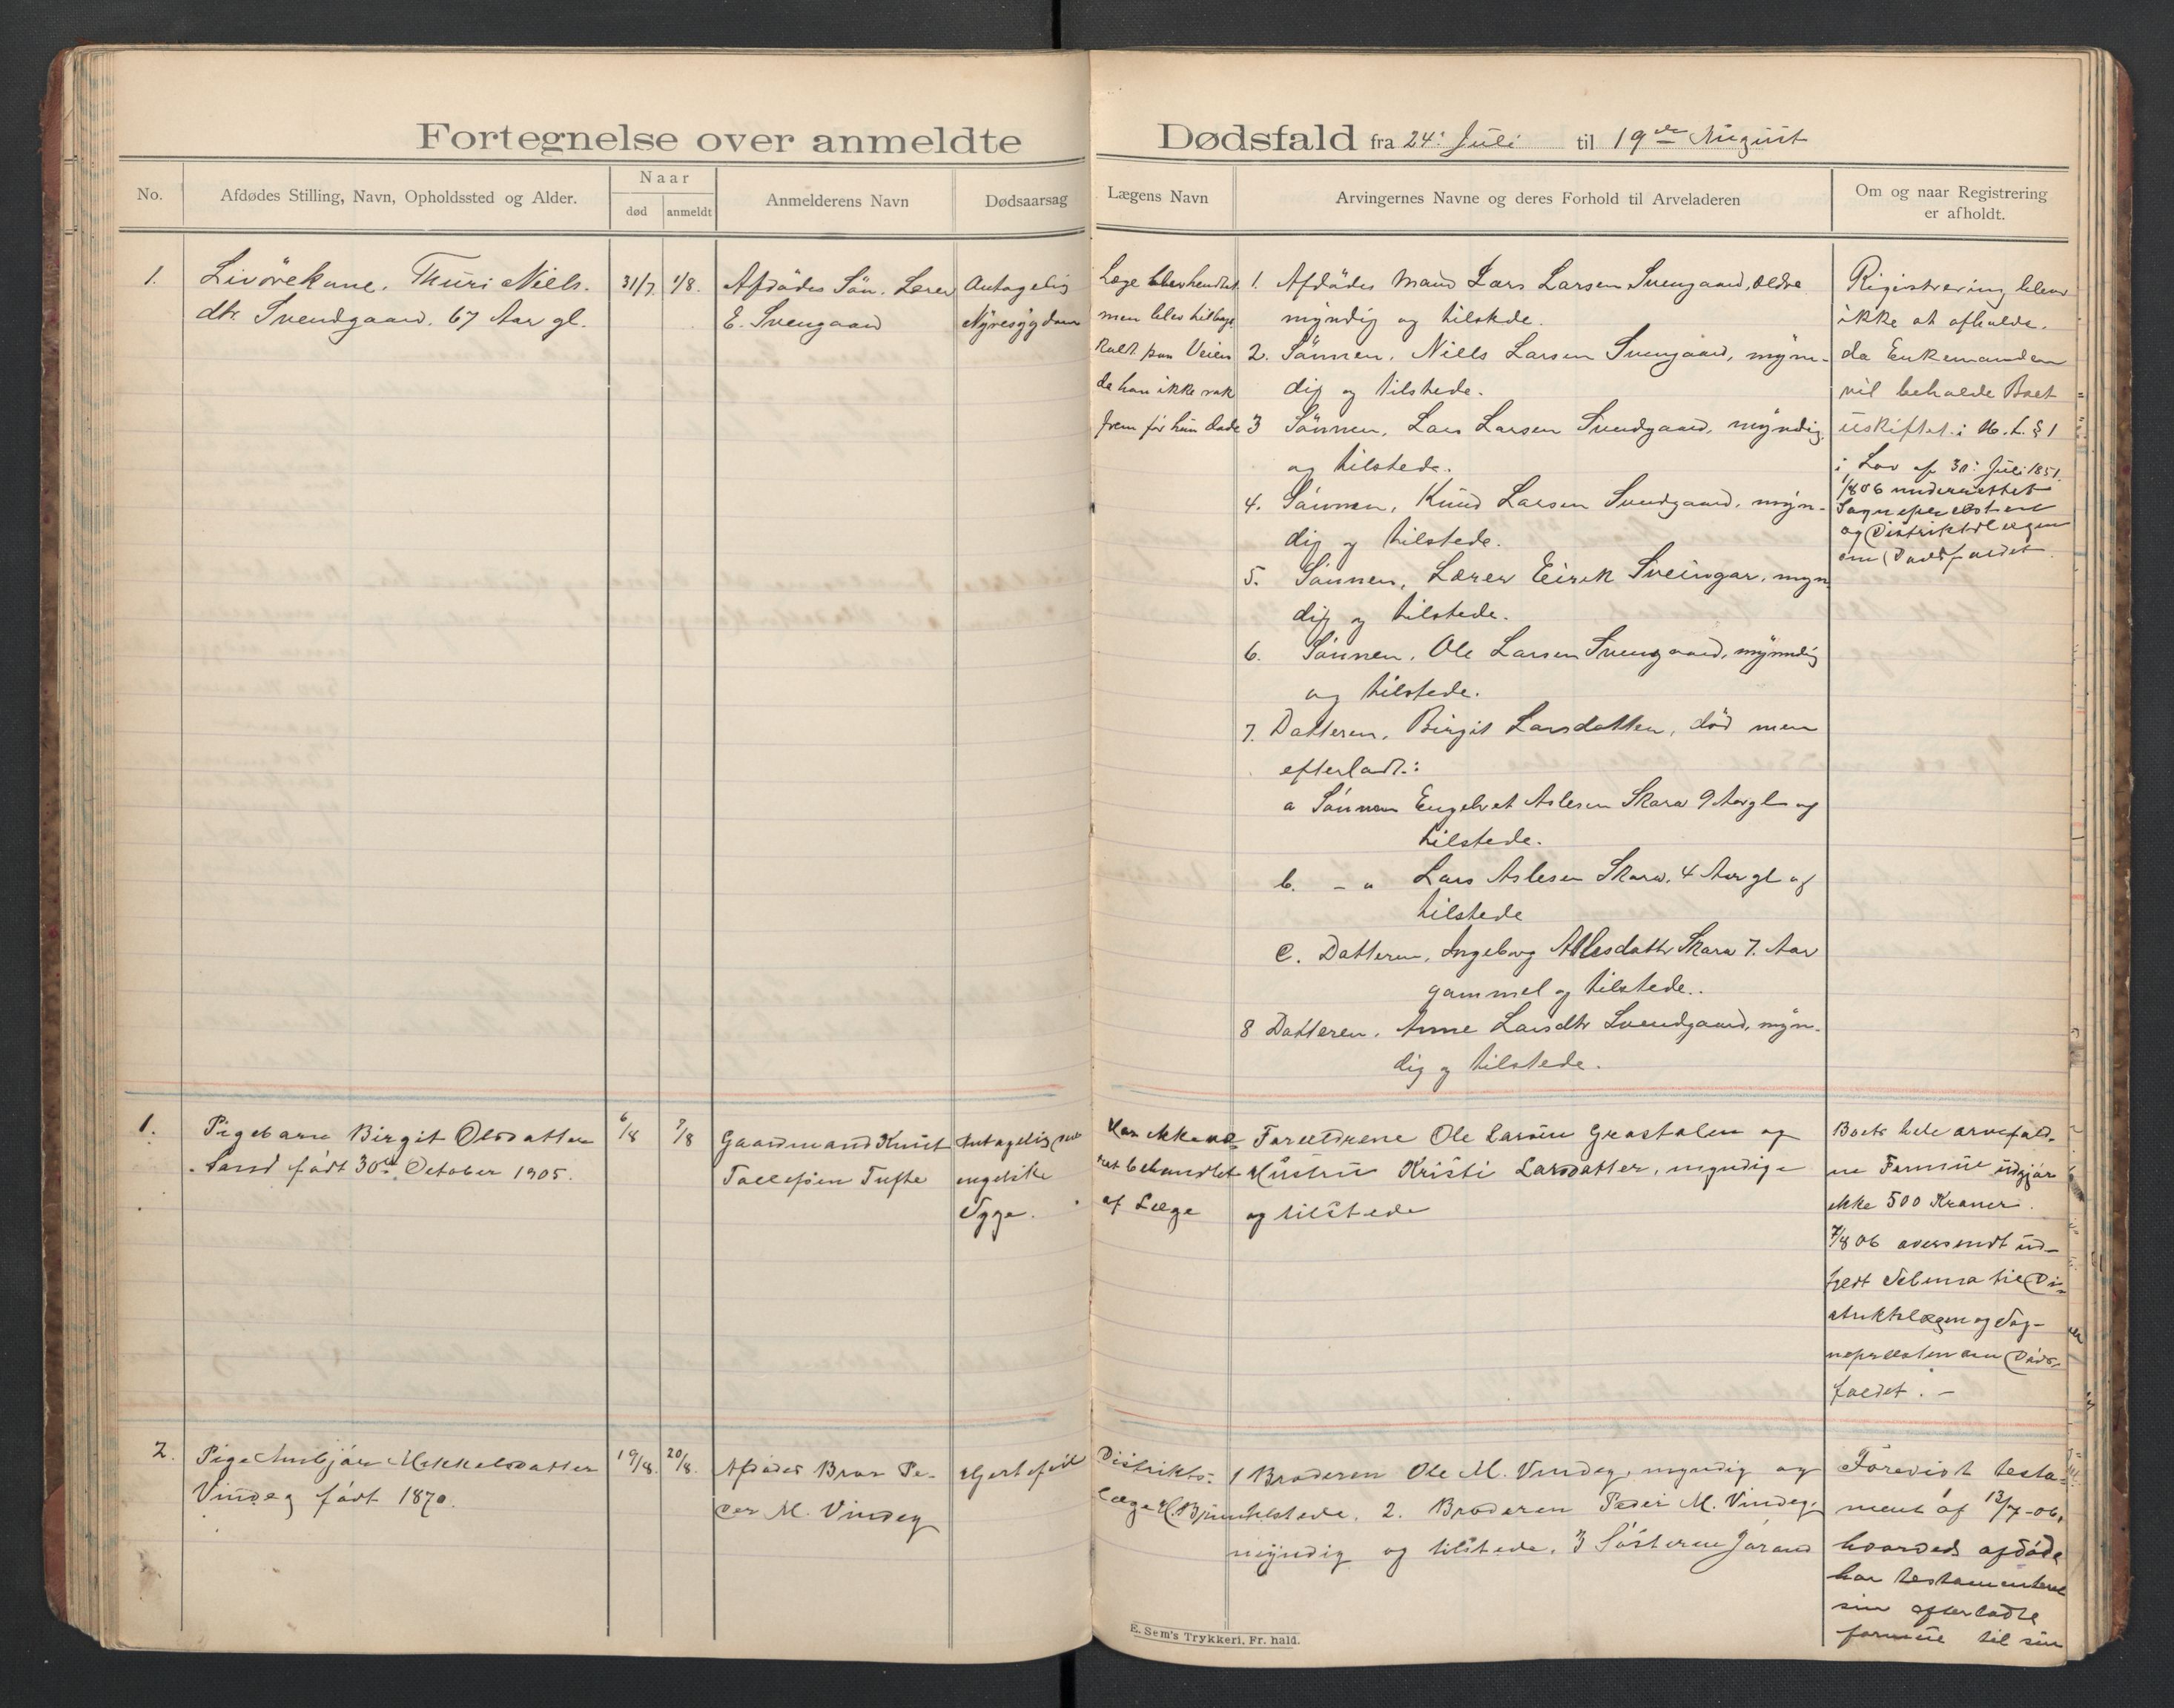 Fortegnelse over anmeldte Dødsfald fra 24: Juli til 19de August
No.
Afdødes Stilling, Navn, Opholdssted og Alder.
Naar
død
anmeldt
Anmelderens Navn
Dødsaarsag
Lægens Navn
Arvingernes Navne og deres Forhold til Arveladeren
Om og naar Registrering
er afholdt.
1.
Livörekone. Thuri Niels.
dtr. Svendgaard. 67 Aar gl.
31/7
1/8.
Afdödes Sön. Lærer
E. Svengaard
Antagelig
Nyresygdom
Læge blev hentet
men blev tilbage
kalt paa Veien
da han ikke rak
frem för hun döde
1. Afdödes Mand Lars Larsen Svengaard, ældre
myndig og tilstede.
2. Sönnen, Niels Larsen Svengaard, myn-
dig og tilstede.
3 Sönnen, Lars Larsen Svendgaard, myndig
og tilstede.
4. Sönnen, Knud Larsen Svendgaard, myn-
dig og tilstede.
5. Sönnen, Lærer Eirik Sveingar, myn-
dig og tilstede.
6. Sönnen, Ole Larsen Svengaard, myndig
og tilstede.
7. Datteren, Birgit Larsdatter, död men
efterladt:
a Sönnen Engebret Aslesen Skara 9 Aar gl og
tilstede.
b. - " Lars Aslesen Skara, 4 Aar gl og
tilstede
c. Datteren, Ingeborg Aslesdatter Skara 7. Aar
gammel og tilstede.
8 Datteren, Anne Larsdtr Svendgaard, myn-
dig og tilstede.
Rigistrering blev
ikke at afholde,
da Enkemanden
vil beholde Boet
uskiftet i M. t. § 1
i Lov af 30: Juli 1851.
1/8 06 underrettet
Sognepresten
og Distriktslægen
om Dødsfaldet.
1.
Pigebarn Birgit Olsdatter
Sand født 30te October 1905.
6/8
7/8
Gaardmand Knut
Tollefsen Tufte
Antagelig den
engelske
Syge.
Har ikke væ
ret behandlet
af Læge
Forældrene Ole Larsen Grøstølen og
Hustru Kristi Larsdatter, myndige
og tilstede
Boets hele arvefald-
ne Formue udgjør
ikke 500 Kroner.
7/8 06 oversendt ud-
fyldt Schema til Di-
striktslægen og Sog-
nepræsten om Døds-
faldet. -
2.
Pige Ambjør Mikkelsdatter
Vindeg født 1870.
19/8.
20/8.
Afdødes Bror Pe-
der M. Vindeg
Hjertefeil
Distrikts-
læge
1 Broderen Ole M. Vindeg, myndig og
tilstede. 2. Broderen Peder M. Vindeg,
myndig og tilstede. 3 Søsteren Jørand
Forevist testa-
ment af 13/7-06,
hvorved afdøde
har testamenteret
sin efterladte
formue til sin
E. Sem's Trykkeri, Fr. hald.